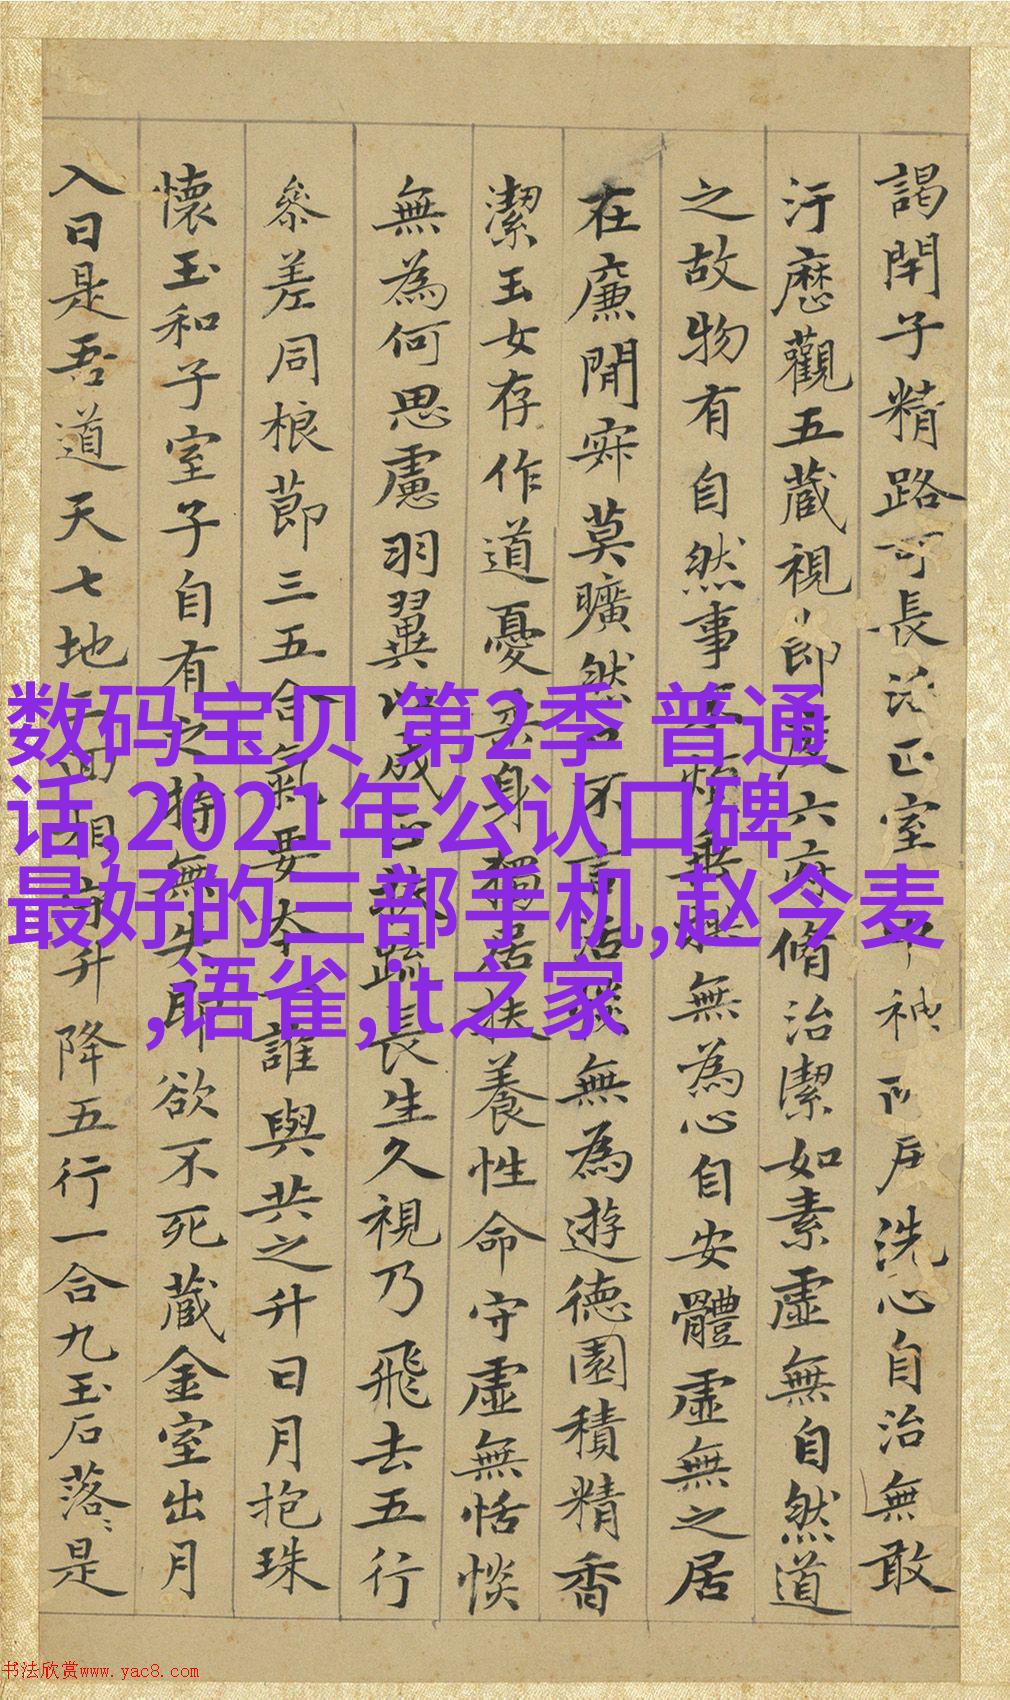 謁閇子精路可長活正室
洗心自治無敢
汙歷觀五藏視節度六府脩治潔如素虛無自然道
之故物有自然事不煩垂拱無為心自安體虛無之居
在廉閒寂莫曠然口不言
無為遊德園積精香
潔玉女存作道憂柔身獨居扶養性命守虛無恬惔
無為何思慮羽翼以成正扶疏長生久視乃飛去五行
參差同根蔕三五合氣要本一誰與共之升日月抱珠
懷玉和子室子自有之持無失即欲不死藏金室出月
入日是吾道天七地三回相守升降五行一合九玉石落〻是
数码宝贝 第2季 普通
话,2021年公认口碑
最好的三部手机,赵今麦
,语雀,it之家
书法欣赏www.yac8.com